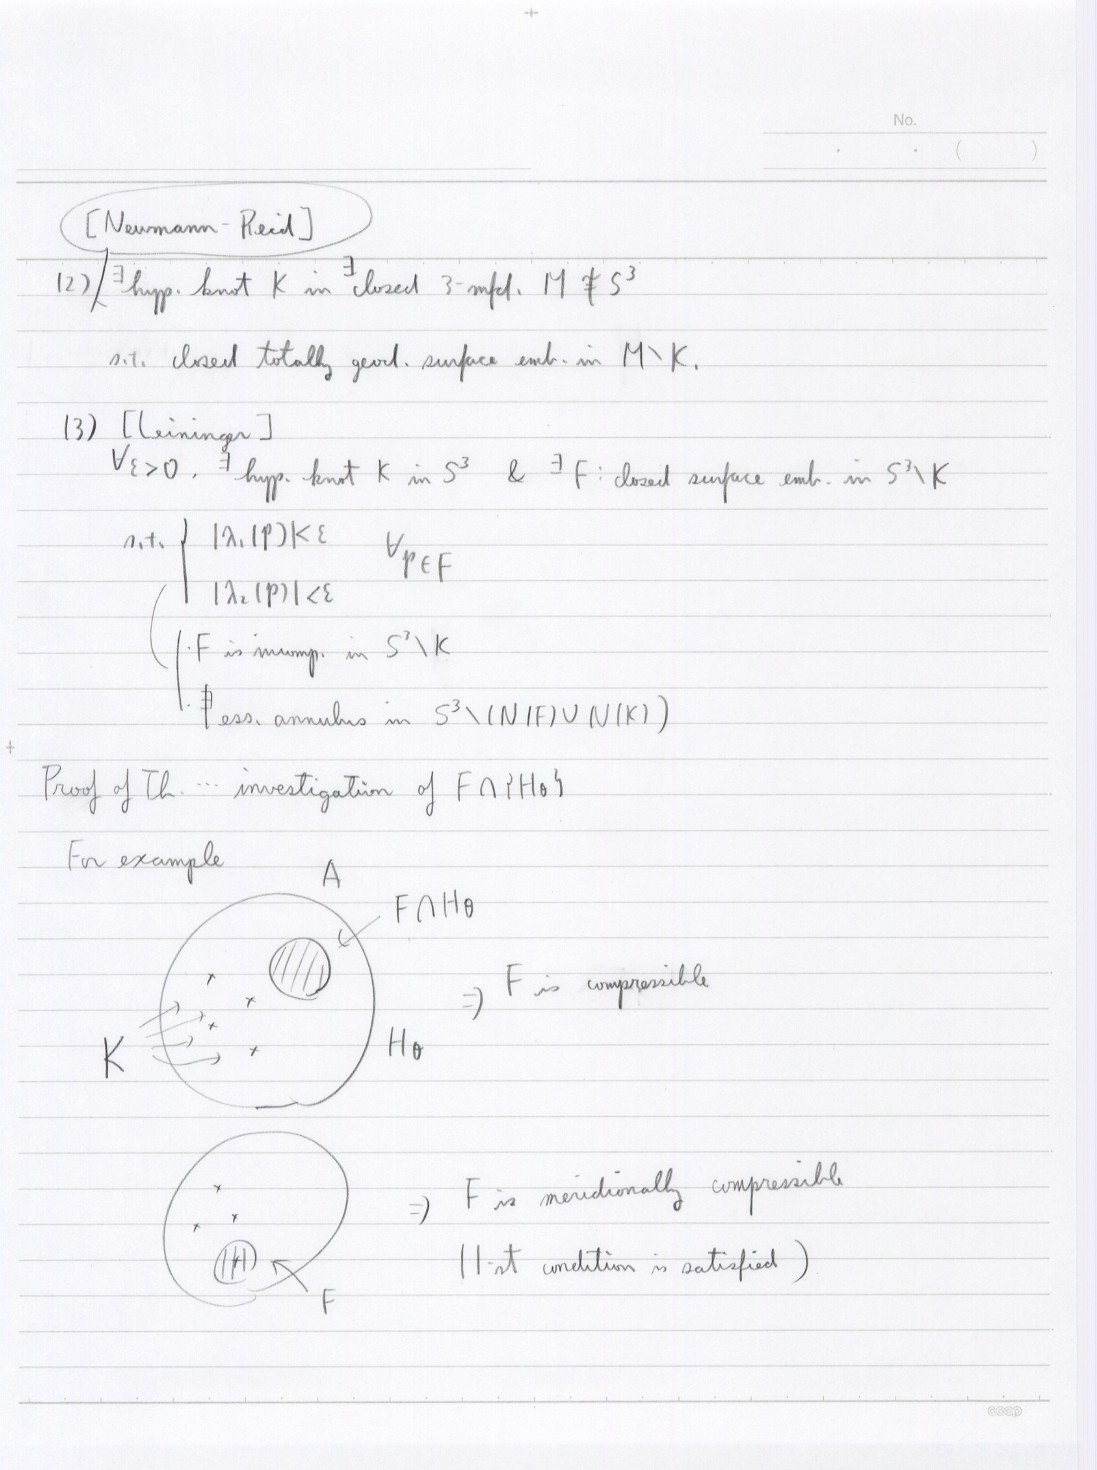 No.
[Neumann-Reid]
(2) ∃hyp. knot K in ∃closed 3-mfd. M ≇ S³
s.t. closed totally geod. surface emb. in M∖K.
(3) [Leininger]
∀ε>0, ∃hyp. knot K in S³ & ∃F: closed surface emb. in S³∖K
s.t. { |λ₁(p)|<ε ∀p∈F
|λ₂(p)|<ε
· F is incomp. in S³∖K
· ∄ess. annulus in S³∖(N(F)∪N(K))
Proof of Th. ... investigation of F∩{Hθ}
For example
A
F∩Hθ
⇒ F is compressible
K
Hθ
⇒ F is meridionally compressible
(1-st condition is satisfied)
F